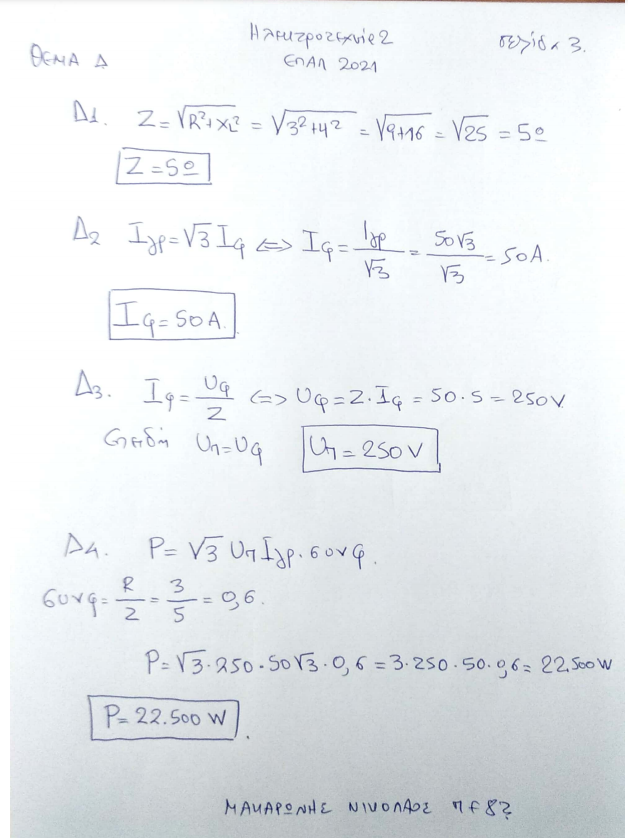 Ηλεκτροτεχνία 2 σελίδα 3.
ΘΕΜΑ Δ ΕΠΑΛ 2021
Δ1. Z = √R²+XL² = √3²+4² = √9+16 = √25 = 5Ω
Z = 5Ω
Δ2 Iγρ = √3 Iφ <=> Iφ = Iγρ/√3 = 50√3/√3 = 50A.
Iφ = 50A.
Δ3. Iφ = Uφ/Z <=> Uφ = Z·Iφ = 50·5 = 250V
Επειδή Uπ = Uφ Uπ = 250V
Δ4. P = √3 Uπ Iγρ·συνφ.
συνφ = R/Z = 3/5 = 0,6.
P = √3·250·50√3·0,6 = 3·250·50·0,6 = 22.500W
P = 22.500W.
ΜΑΚΑΡΩΝΗΣ ΝΙΚΟΛΑΟΣ ΠΕ82